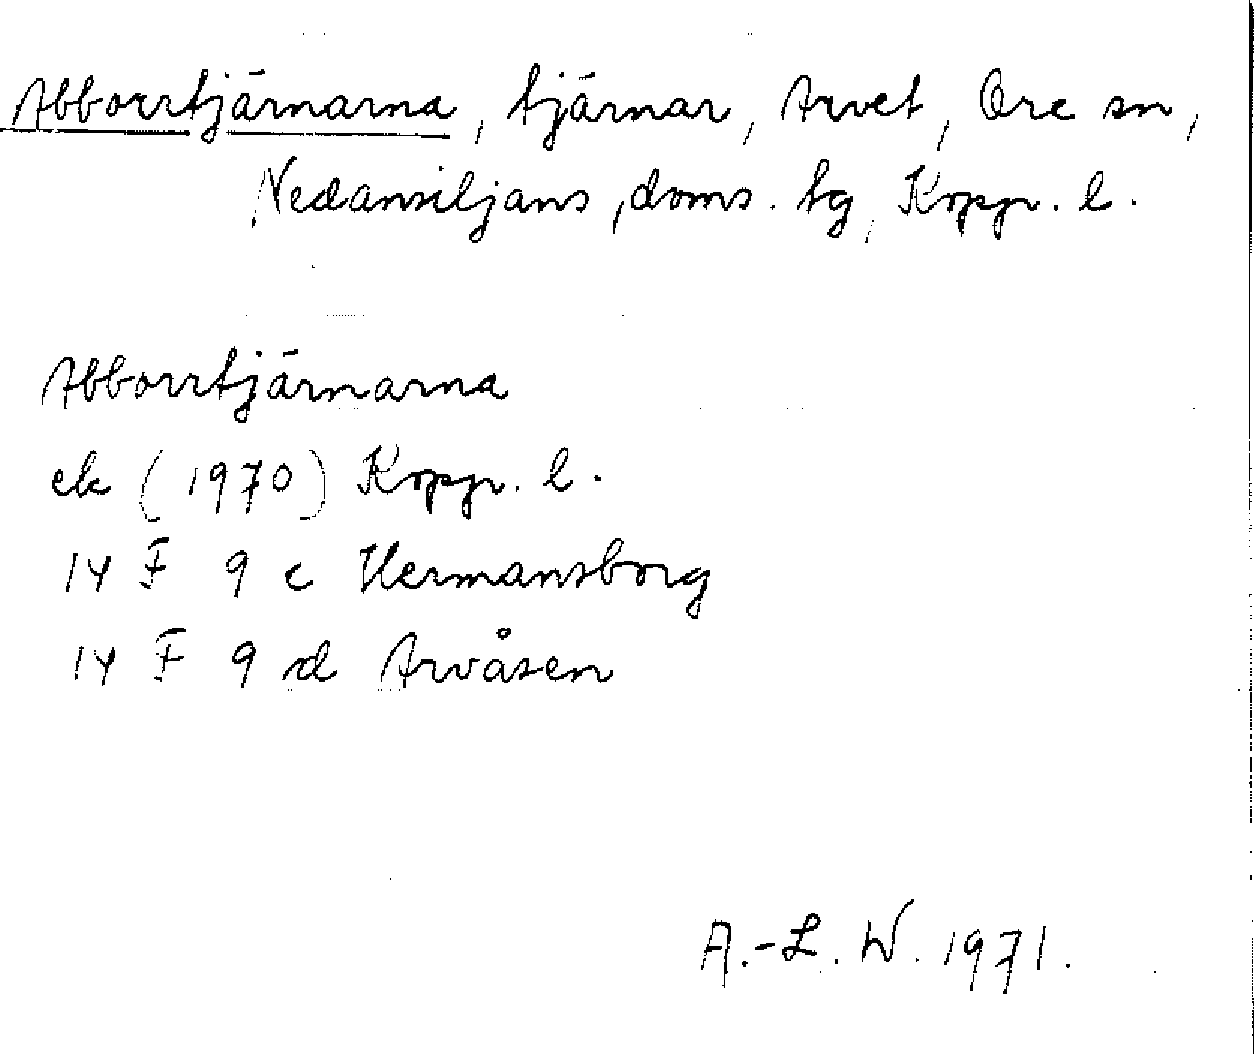 Abborrtjärnarna, tjärnar, Arvet, Ore sn,
Nedansiljans, doms. tg, Kopp. l.
Abborrtjärnarna
ek (1970) Kopp. l.
14 F 9 c Hermansborg
14 F 9 d Arvåsen
A.-L. W. 1971.